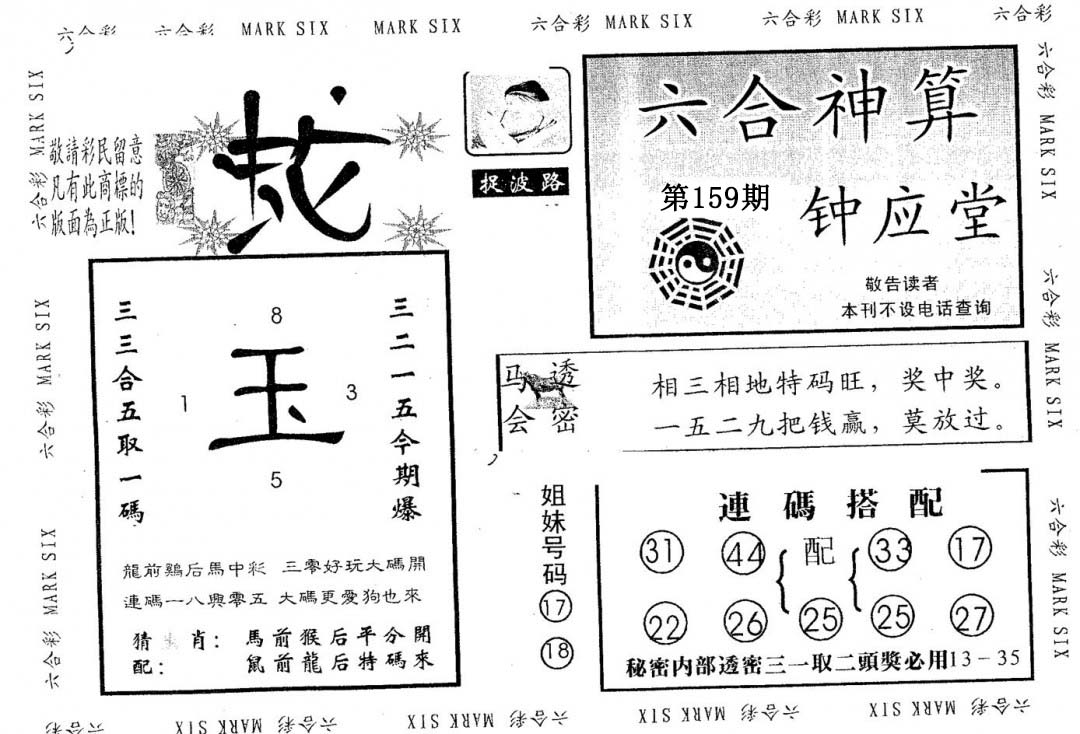 六合彩 六合彩 MARK SIX MARK SIX 六合彩 MARK SIX 六合彩 MARK SIX 六合彩
六合彩 MARK SIX
敬請彩民留意
凡有此商標的
版面為正版!
蛇
捉波路
六合神算
第159期
钟应堂
敬告读者
本刊不设电话查询
六合彩 MARK SIX
六合彩 MARK SIX
六合彩 MARK SIX
六合彩 MARK SIX
六合彩 MARK SIX
三三合五取一碼
8
1
玉
3
5
三二一五今期爆
龍前鷄后馬中彩 三零好玩大碼開
連碼一八與零五 大碼更愛狗也來
猜生肖: 馬前猴后平分開
配: 鼠前龍后特碼來
马会
透密
相三相地特码旺，奖中奖。
一五二九把钱赢，莫放过。
姐妹号码
17
18
連碼搭配
31 44 { 配 { 33 17
22 26 25 25 27
秘密内部透密三一取二頭獎必用13-35
六合彩 MARK SIX 六合彩 MARK SIX 六合彩 MARK SIX 六合彩 MARK SIX 六合彩